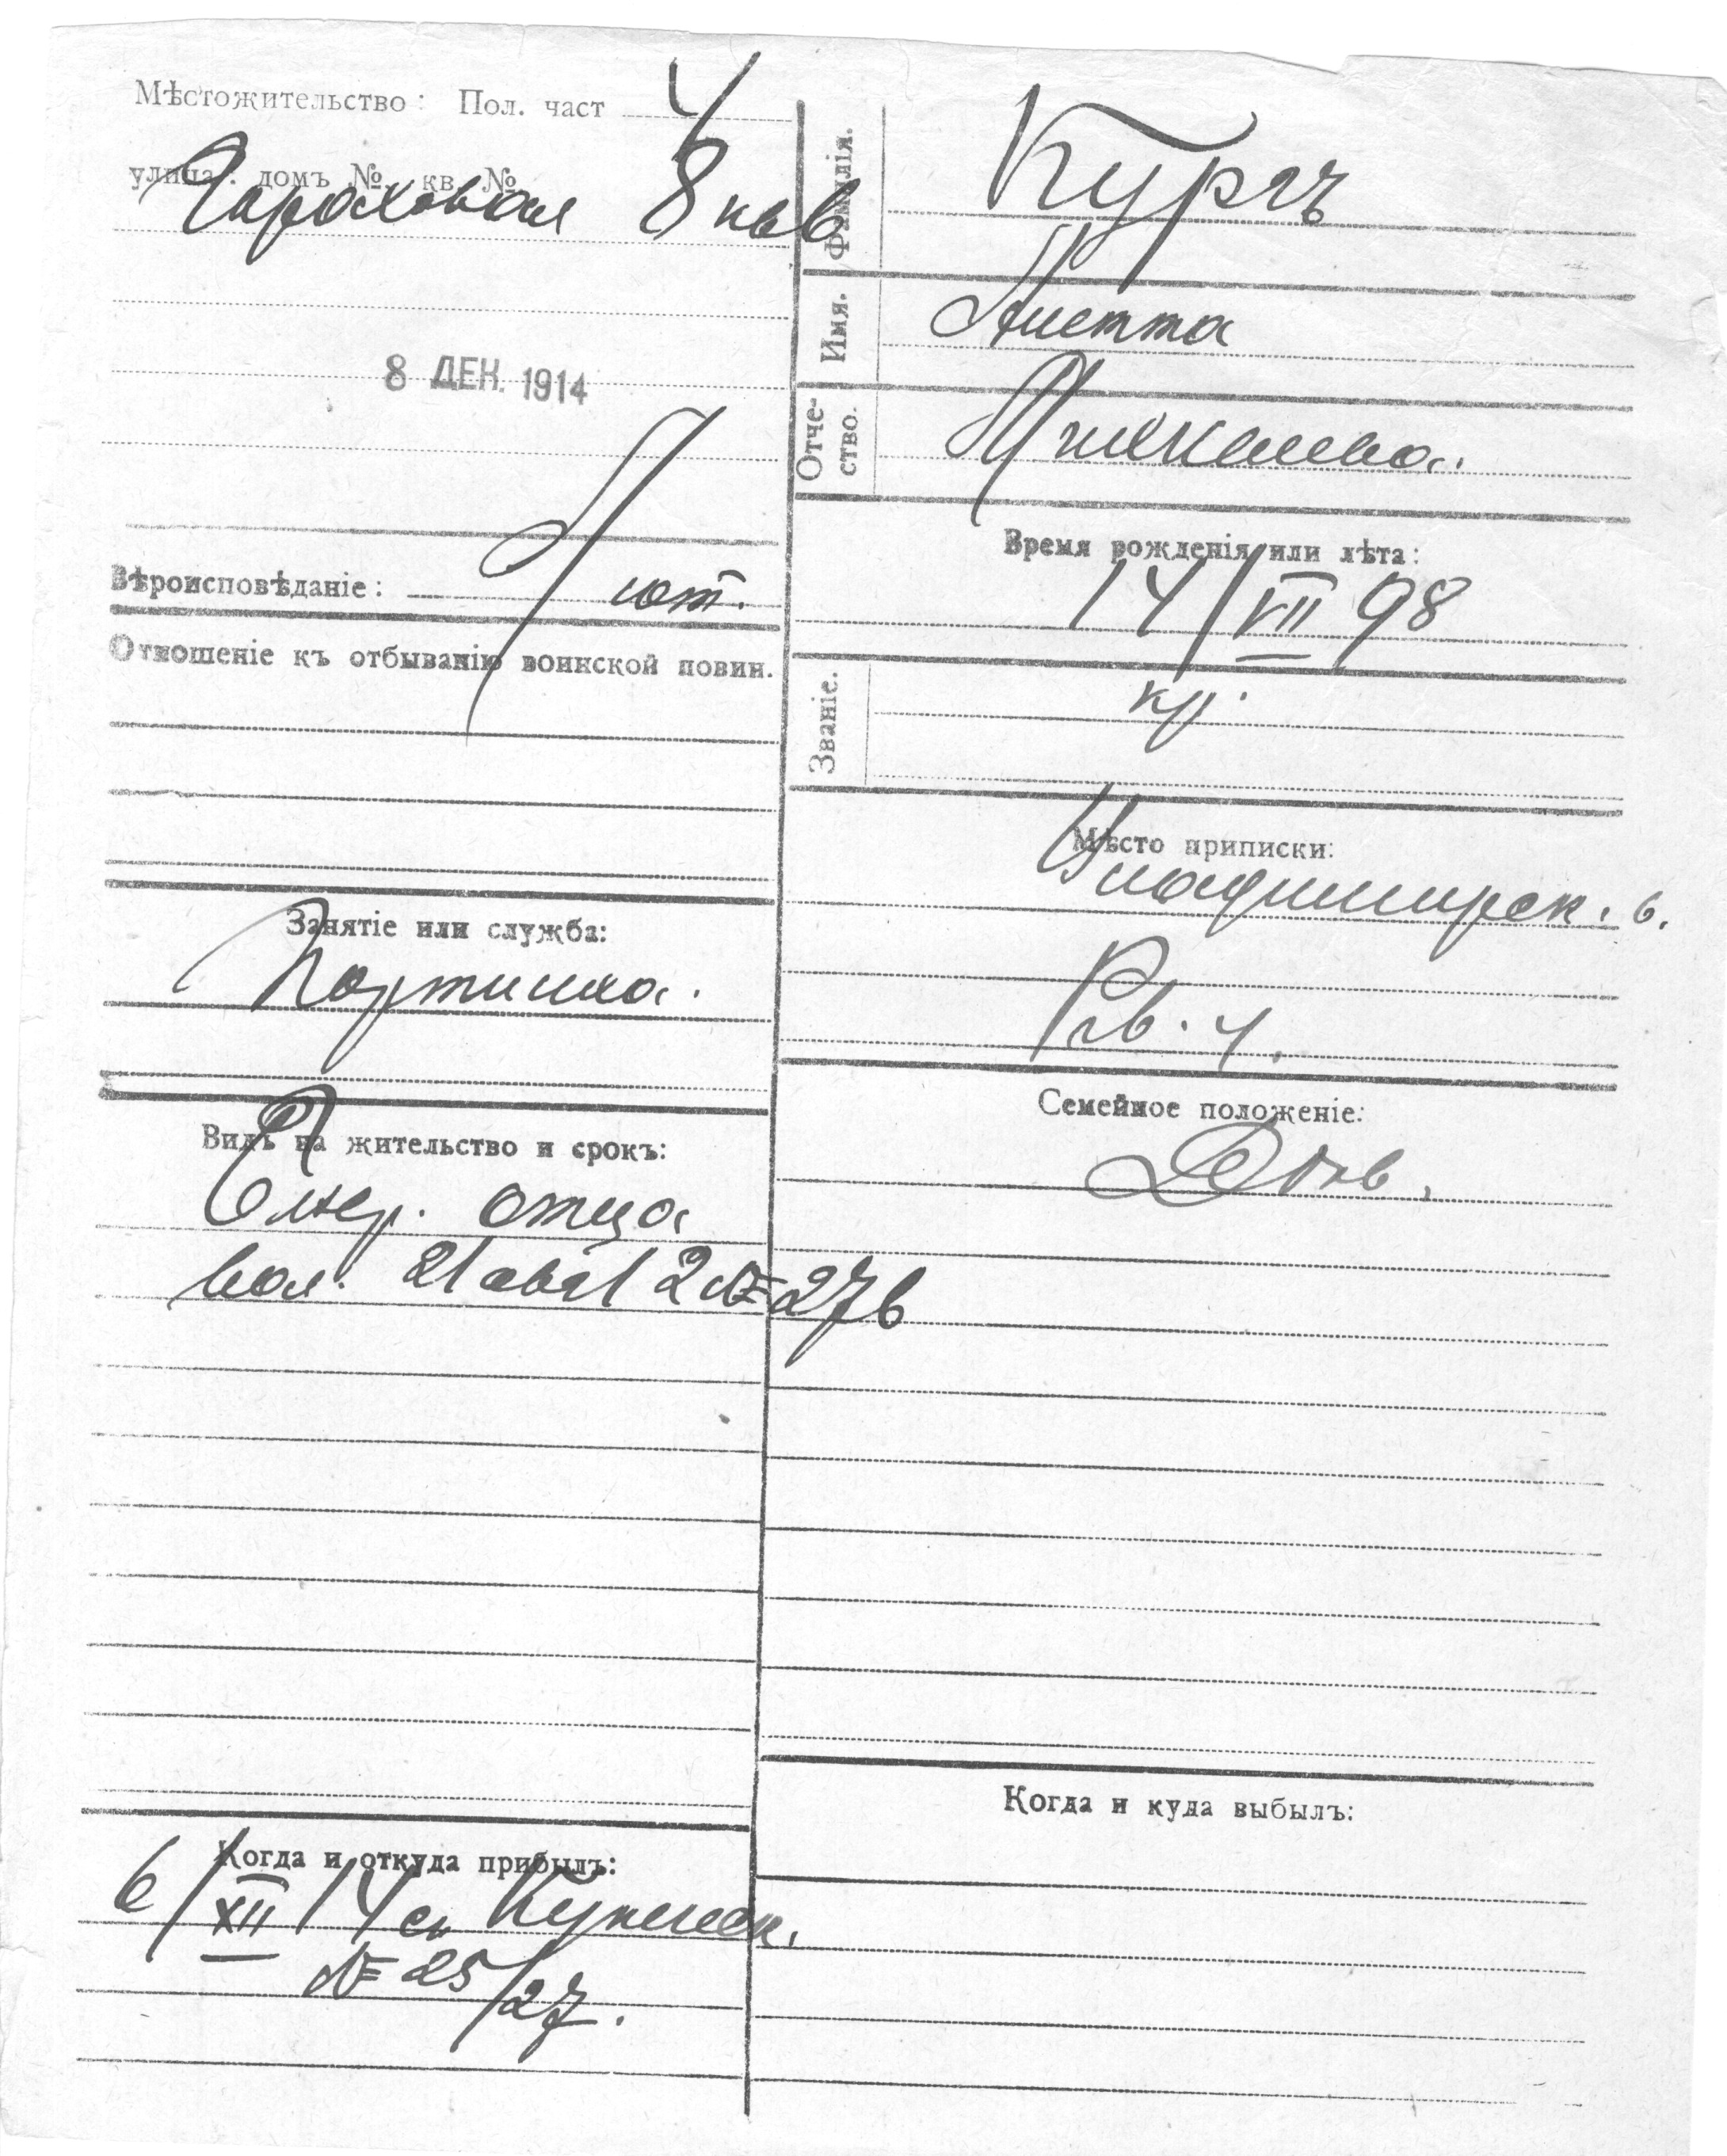 Мѣстожительство: Пол. част 4
улица: домъ № кв. №
Гороховая 8 кв 6
8 ДЕК. 1914
Вѣроисповѣданіе: лют.
Отношеніе къ отбыванію воинской повин.
Занятіе или служба:
Портниха.
Видъ на жительство и срокъ:
отца
вол. 21 авг 12 № 276
Когда и откуда прибылъ:
6/XII 14 съ
№ 25/27.
Фамилія.
Кургъ
Имя.
Анетта
Отче-
ство.
Михкелева.
Время рожденія или лѣта:
14/VII 98
Званіе.
кр.
Мѣсто приписки:
Владимирск. в.
Рв. у.
Семейное положеніе:
Дѣв.
Когда и куда выбылъ: